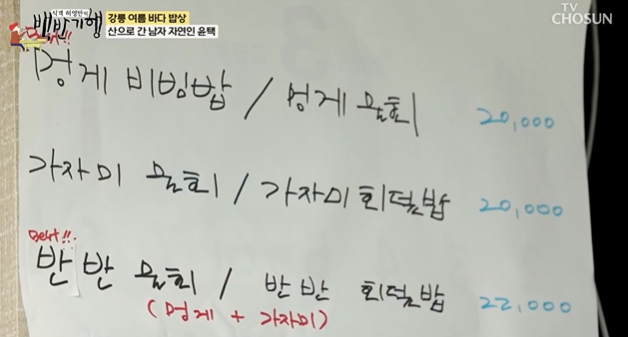 식객 허영만의 백반기행
강릉 여름 바다 밥상
산으로 간 남자 자연인 윤택
TV
CHOSUN
Best!!
멍게 비빔밥 / 멍게 물회 20,000
가자미 물회 / 가자미회덮밥 20,000
Best!!
반반 물회 / 반반 회덮밥 22,000
(멍게 + 가자미)